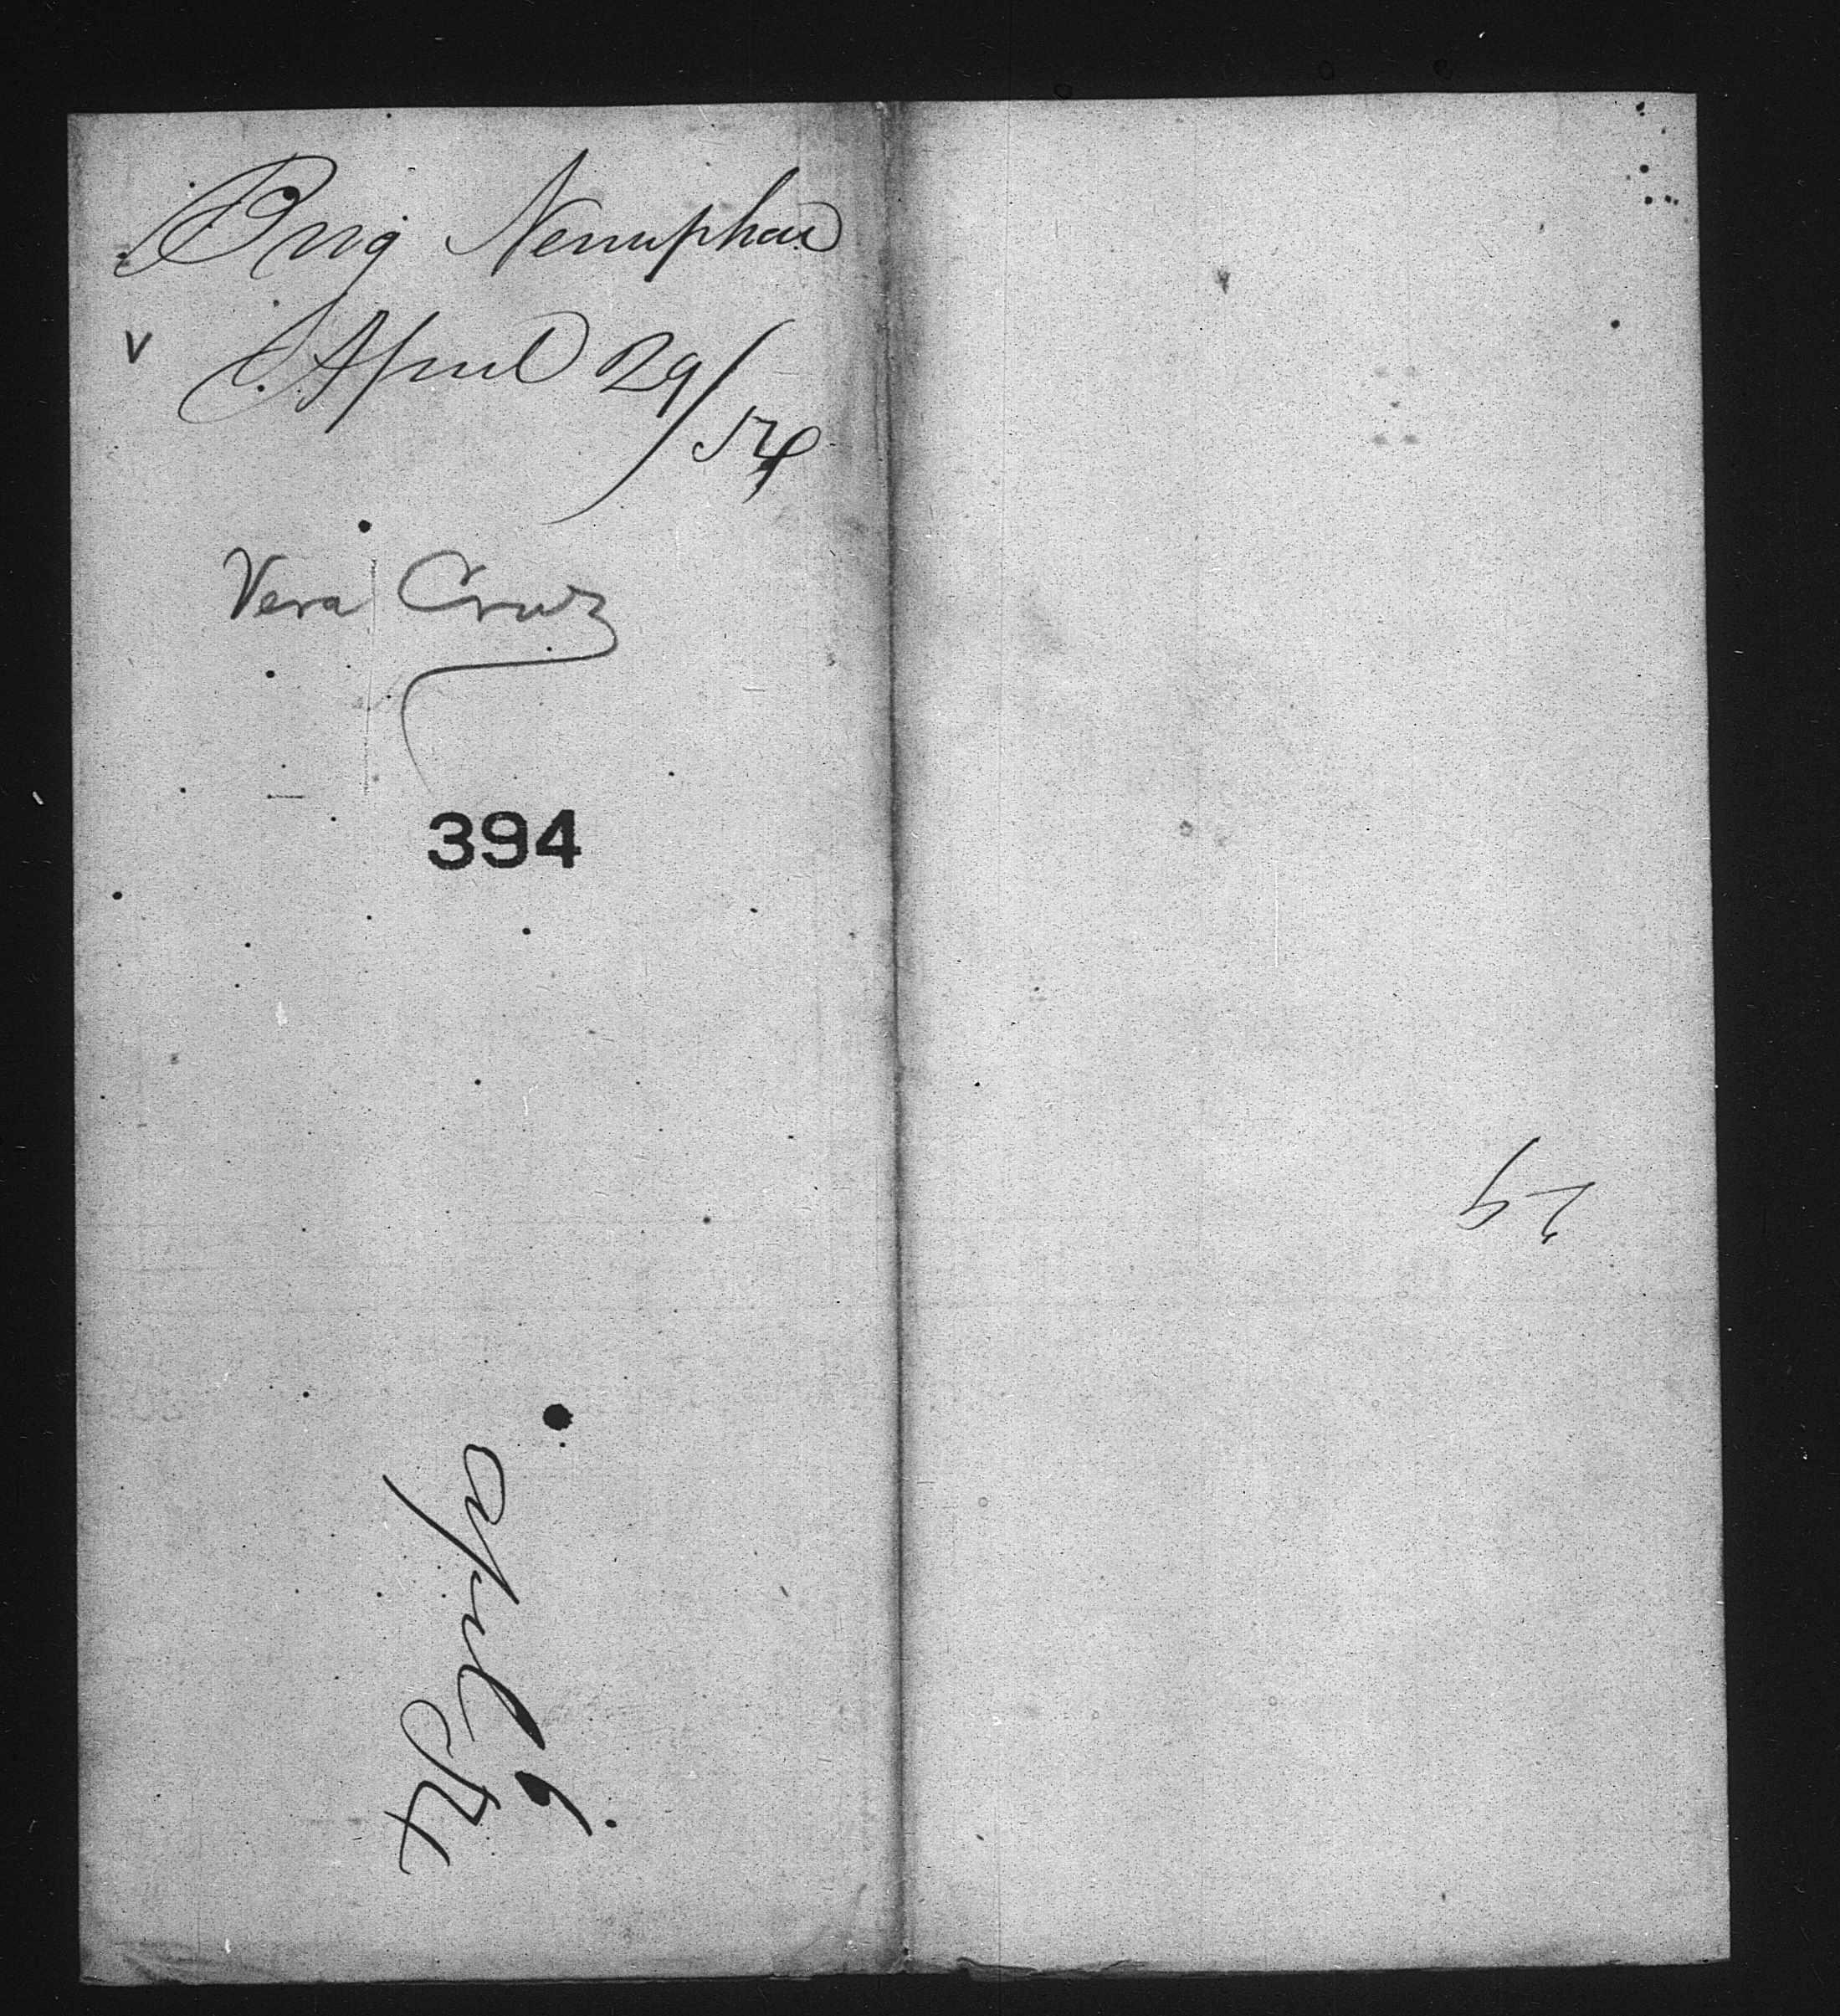 Brig Nenuphar
v April 29/54
Vera Cruz
394
April 9
54
29